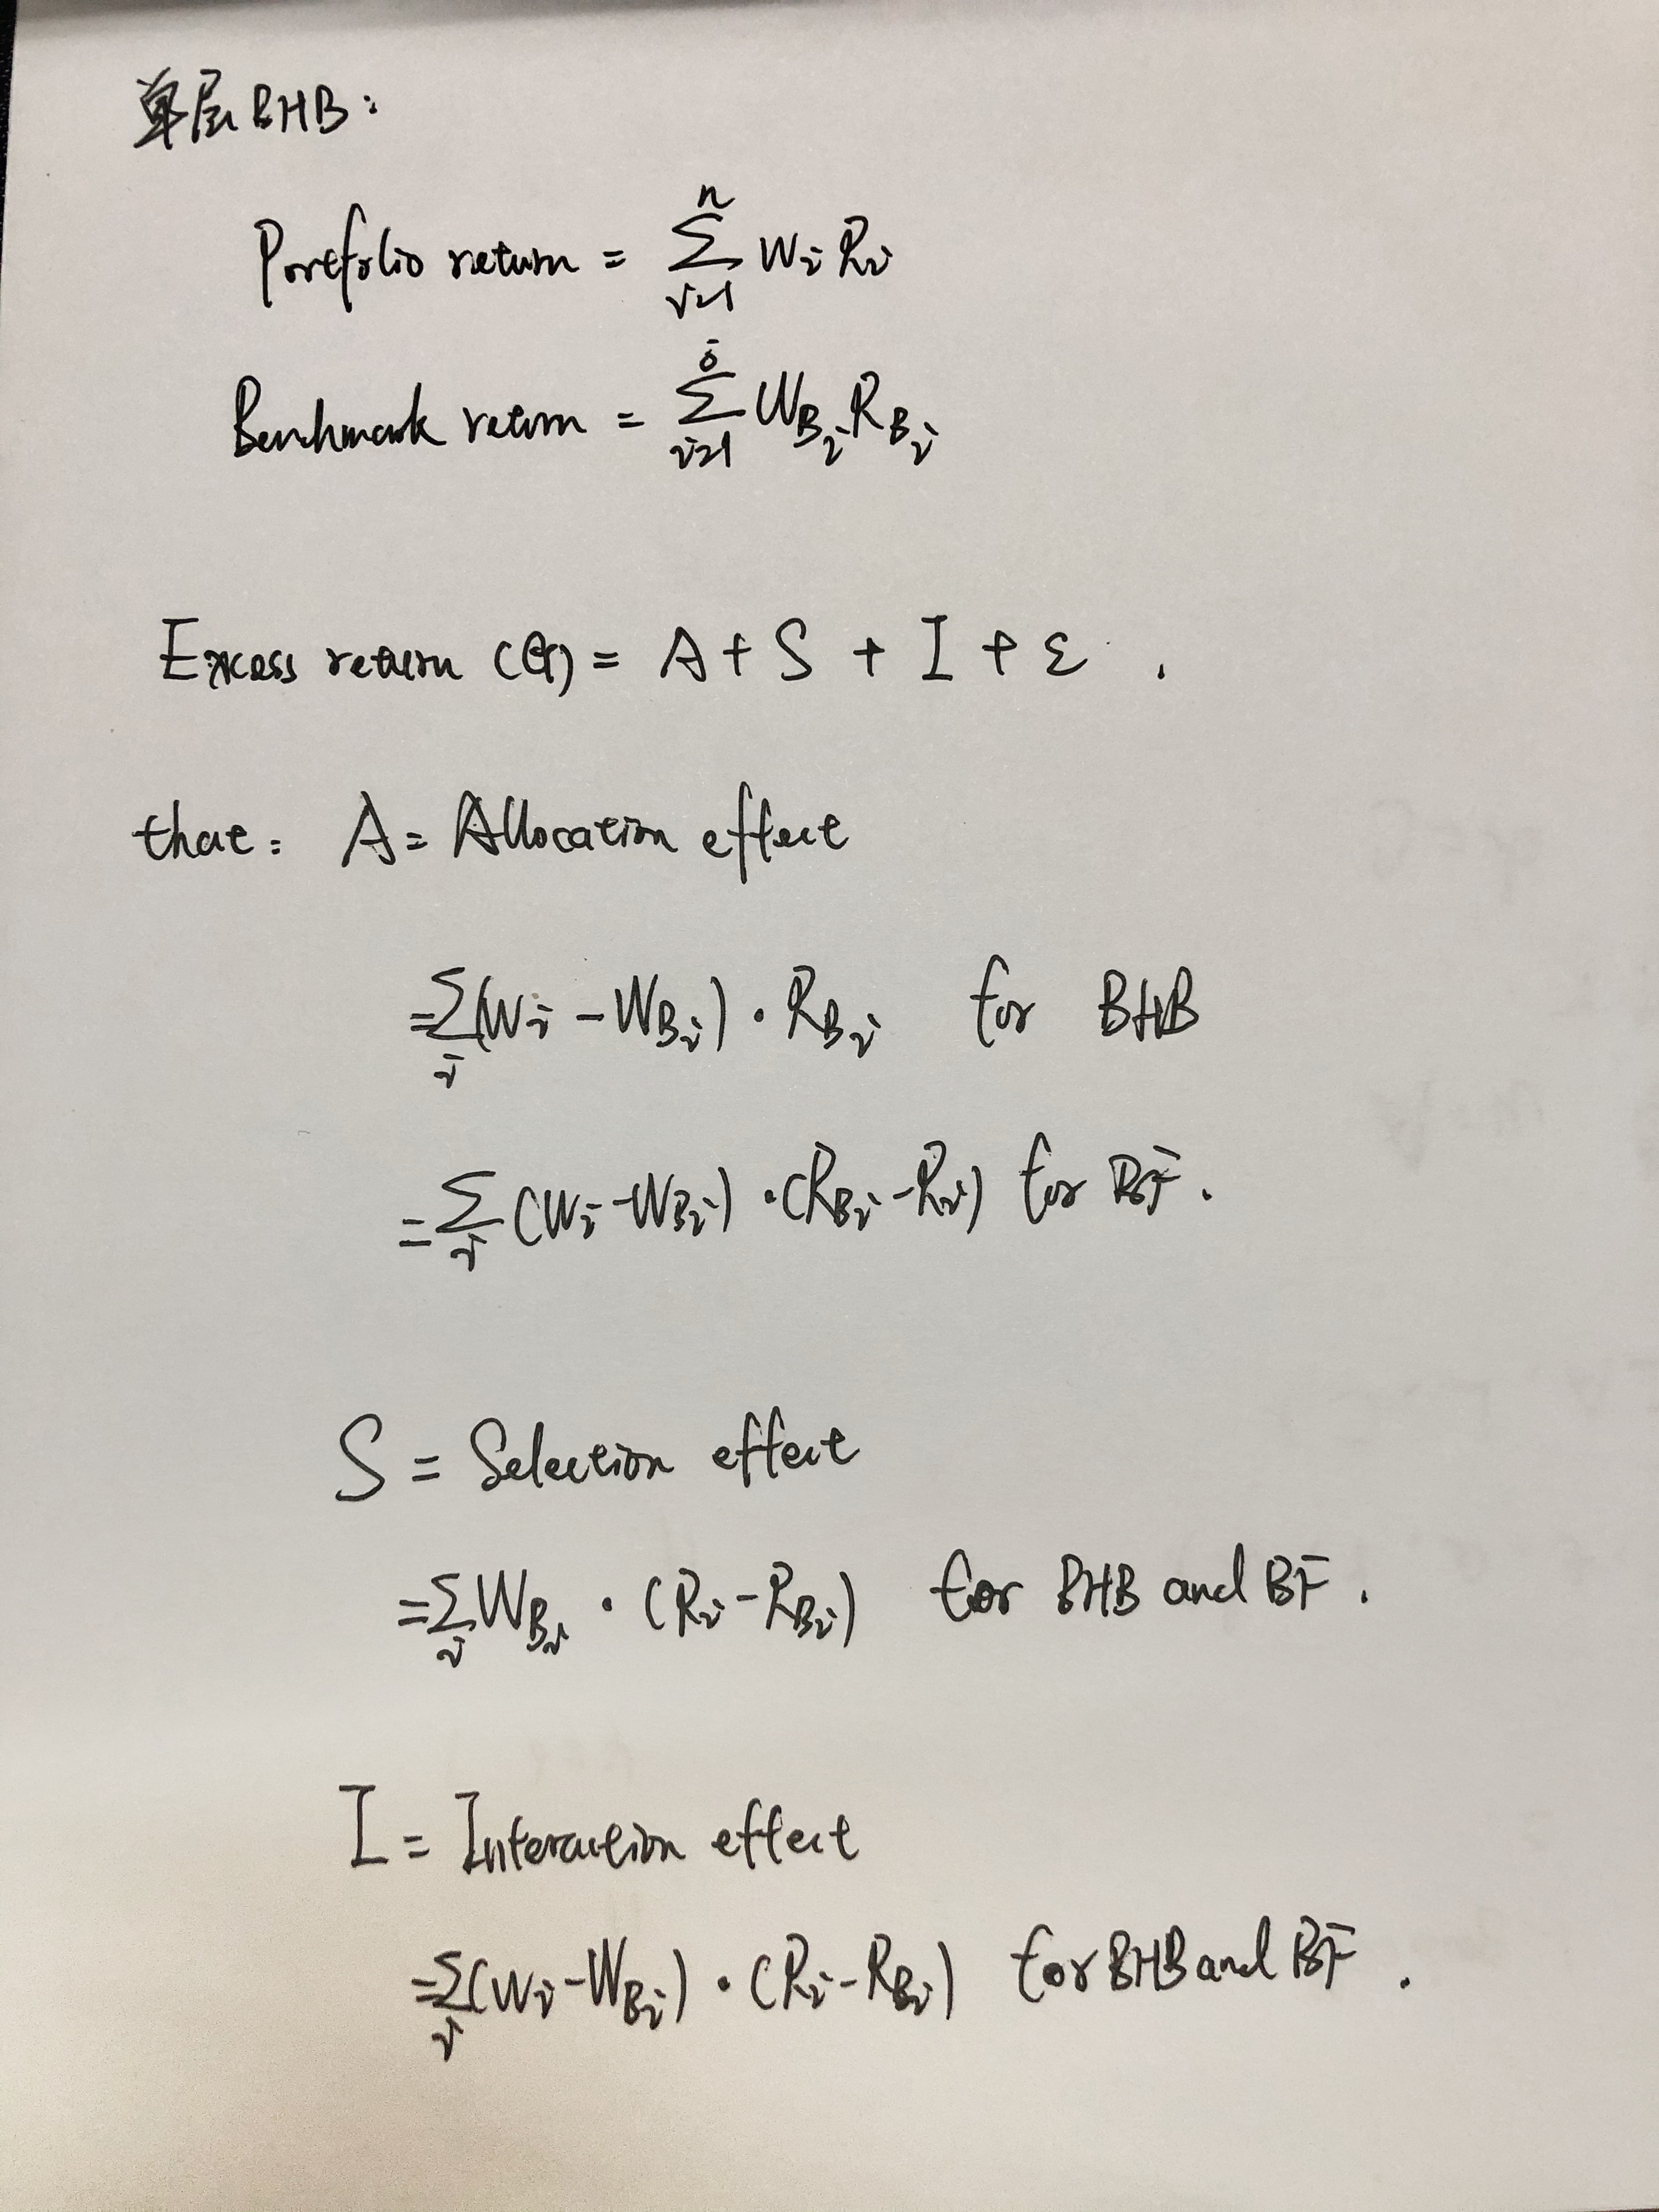 单层BHB:
Portfolio return = \sum_{i=1}^{n} W_i R_i
Benchmark return = \sum_{i=1}^{i} W_{B_i} R_{B_i}
Excess return = A + S + I + ε .
that: A = Allocation effect
= \sum_i (W_i - W_{B_i}) · R_{B_i} for BHB
= \sum_i (W_i - W_{B_i}) · (R_{B_i} - R_i) for BF.
S = Selection effect
= \sum_i W_{B_i} · (R_i - R_{B_i}) for BHB and BF.
I = Interaction effect
= \sum_i (W_i - W_{B_i}) · (R_i - R_{B_i}) for BHB and BF.